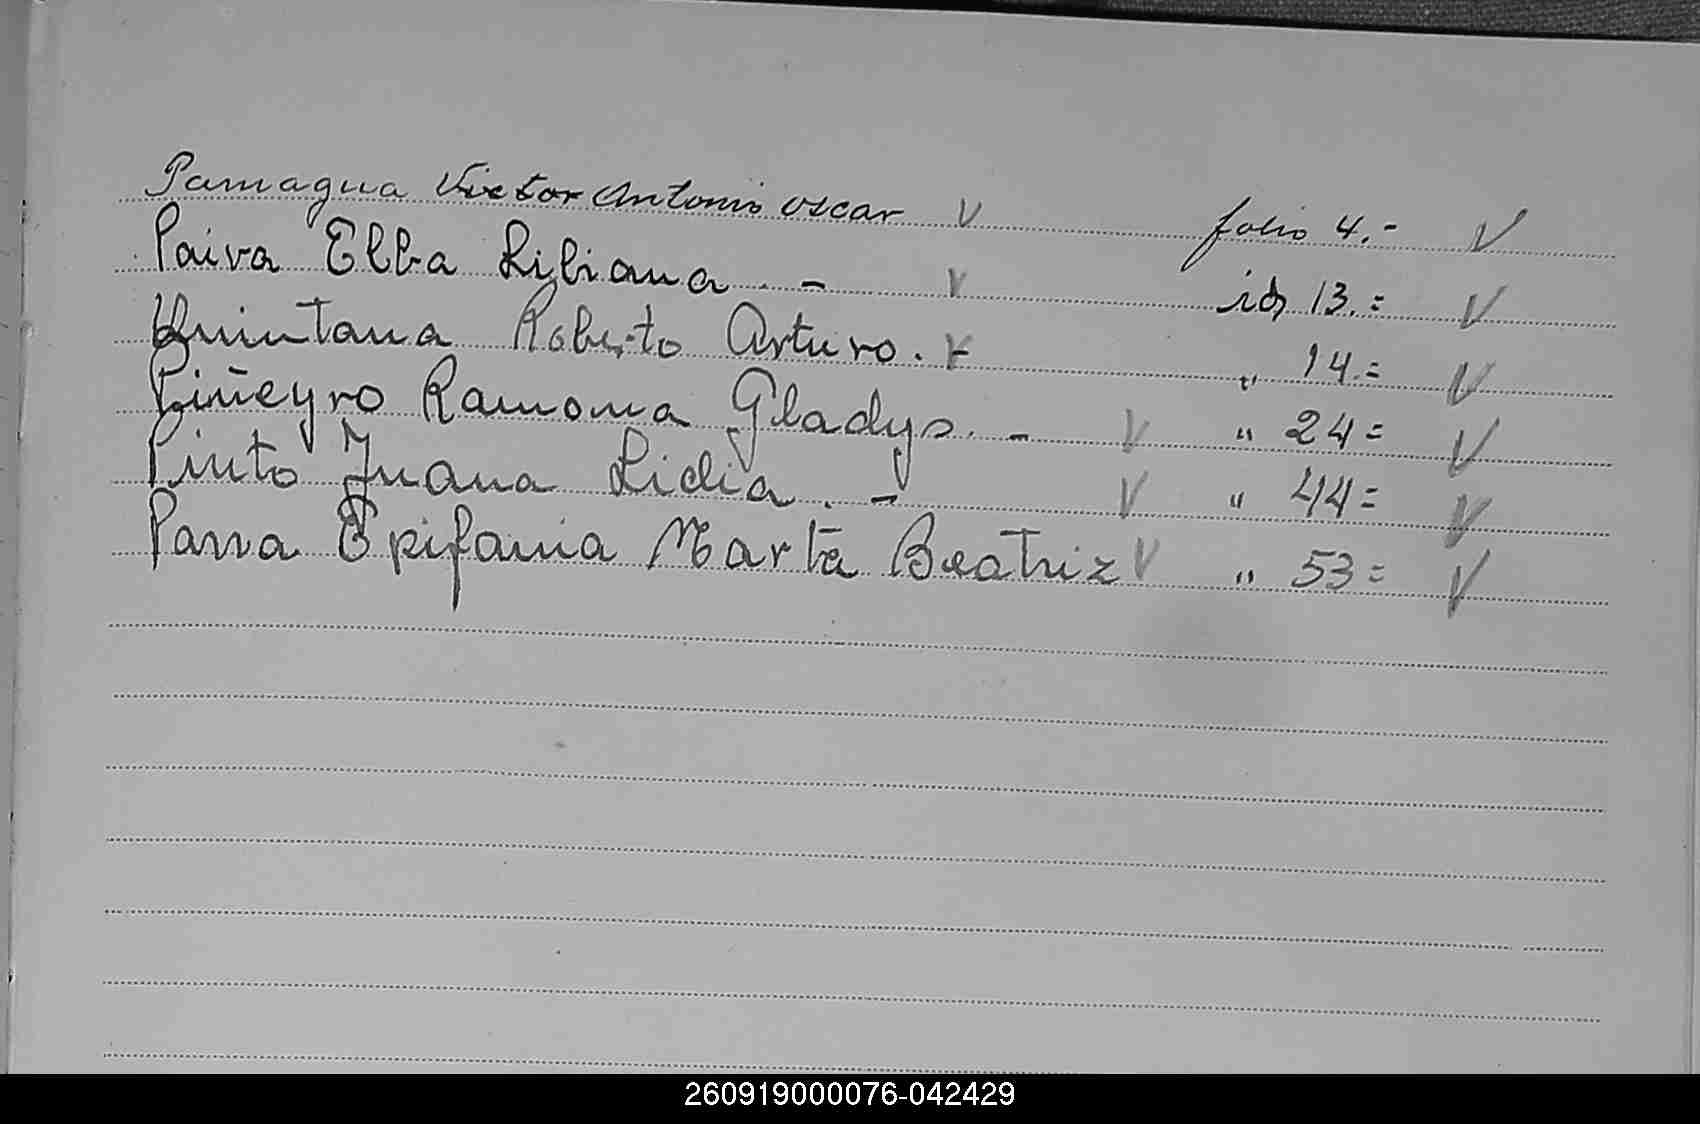 Pamagua Victor Antonio Oscar V folio 4.- V
Paiva Elba Liliana . - V id, 13.= V
Quintana Roberto Arturo . - V " 14.= V
Piñeyro Ramona Gladys . - V " 24= V
Pinto Juana Lidia . - V " 44= V
Parra Epifania Marta Beatriz V " 53= V
260919000076-042429